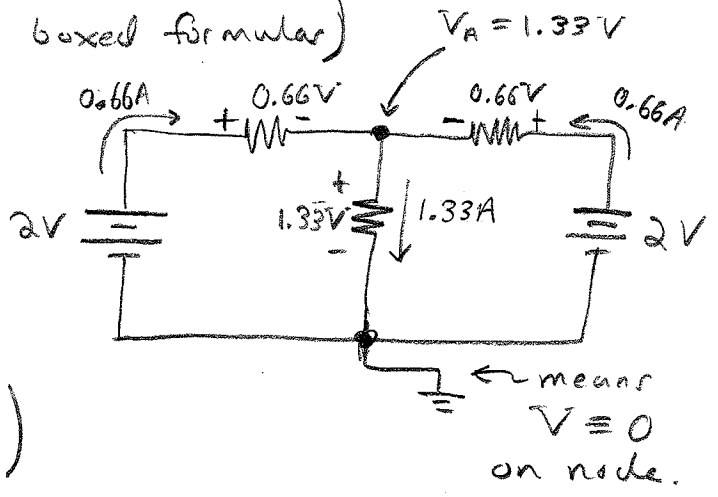 boxed formular)
V_A = 1.33 V
0.66A
+ 0.66V -
0.66V
- +
0.66A
2V
+
1.33V
-
1.33A
2V
)
← means
V ≡ 0
on node.